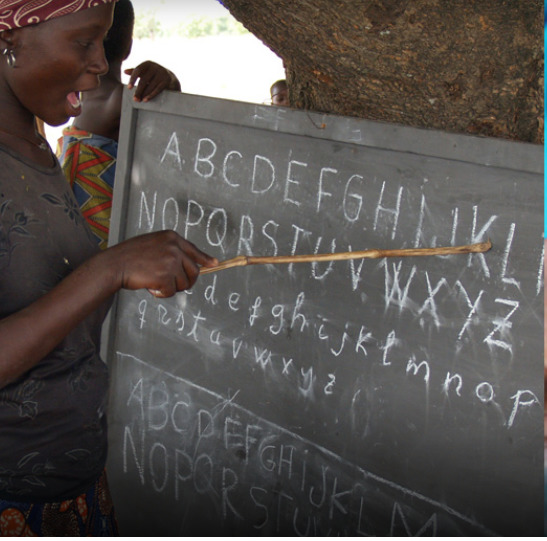 A B C D E F G H I J K L
N O P Q R S T U V W X Y Z
d e f g h i j k l m n o p
q r s t u v w x y z
A B C D E F G H I J K L M
N O P Q R S T U V